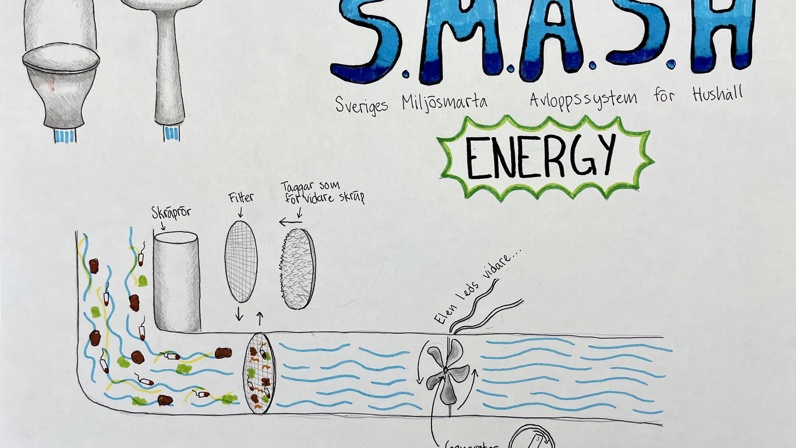 S.M.A.S.H
Sveriges Miljösmarta Avloppssystem för Hushall
ENERGY
Skräprör
Filter
Taggar som
för vidare skräp
Elen leds vidare...
Generator